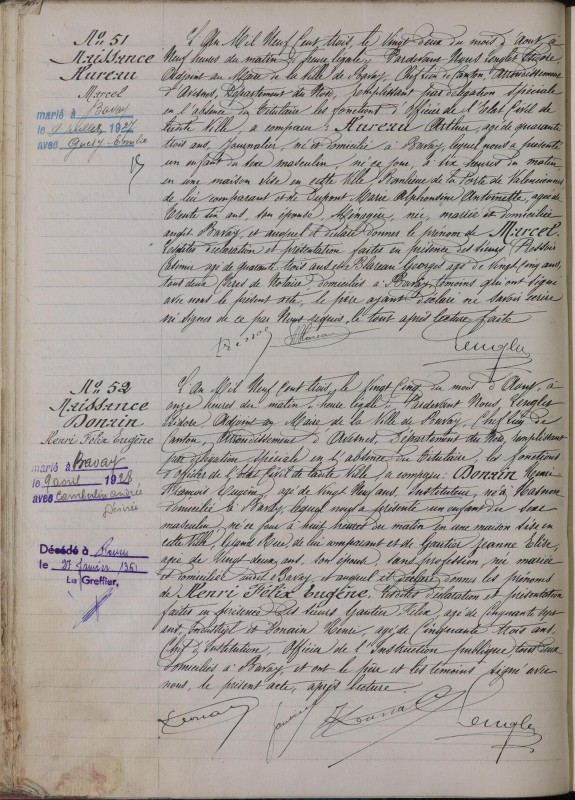 No 51
Naissance
Hureau
Marcel
marié à Bavay
le 9 juillet 1927
avec
L'An Mil Neuf Cent trois, le vingt deux du mois d'Aout, à
Neuf heures du matin, heure légale, Pardevant Nous Lengles Isidore
Adjoint au Maire de la Ville de Bavay, Chef lieu de Canton, Arrondissement
d'Avesnes, Département du Nord, remplissant par délégation spéciale
en l'absence du titulaire les fonctions d'Officier de l'Etat Civil de
ladite Ville, a comparu: Hureau Arthur, agé de quarante
trois ans, journalier, né et domicilié à Bavay, lequel nous a présenté
un enfant du sexe masculin, né ce jour, à six heures du matin
en une maison sise en cette Ville, Banlieue de la Porte de Valenciennes
de lui comparant et de Dupont Marie Alphonsine Antoinette, agée de
trente six ans, son épouse, Ménagère, née, mariée et domiciliée
audit Bavay, et auquel il a déclaré donner le prénom de Marcel
Lesdites déclaration et présentation faites en présence des sieurs
Casimir agé de quarante trois ans et Blareau Georges agé de vingt cinq ans,
tous deux Clercs de Notaire domiciliés à Bavay, témoins qui ont signé
avec nous le présent acte, le père ayant déclaré ne savoir écrire
ni signer de ce par Nous requis, le tout après lecture faite
Lengles
No 52
Naissance
Donzin
Henri Félix Eugène
marié à Bavay
le 9 avril 1928
avec Camberlin Andrée
Désirée
Décédé à
le 27 Janvier 1951
Le Greffier,
L'An Mil Neuf Cent trois, le Vingt Cinq du mois d'Aout, à
onze heures du matin, heure légale, Pardevant Nous, Lengles
Isidore, Adjoint au Maire de la Ville de Bavay, Chef lieu de
Canton, Arrondissement d'Avesnes, Département du Nord, remplissant
par délégation spéciale en l'absence du titulaire, les fonctions
d'Officier de l'Etat Civil de ladite Ville, a comparu: Donzin Henri
François Eugène, agé de vingt Neuf ans, Instituteur, né à
domicilié à Bavay, lequel nous a présenté un enfant du sexe
masculin, né ce jour à huit heures du matin en une maison sise en
cette Ville, Grande Rue, de lui comparant et de Gautier Jeanne Elise,
agée de Vingt deux ans, son épouse, sans profession, née mariée
et domiciliée audit Bavay et auquel il a déclaré donner les prénoms
de Henri Félix Eugène. Lesdites déclaration et présentation
faites en présence des sieurs Gautier Félix, agé de Cinquante sept
ans, Industriel et Donain René, agé de Cinquante trois ans,
Chef d'Institution, Officier de l'Instruction publique tous deux
domiciliés à Bavay, et ont le père et les témoins signé avec
nous, le présent acte, après lecture.
Lengles